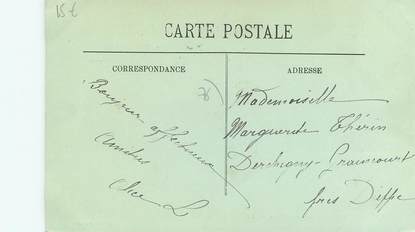 15 €
CARTE POSTALE
CORRESPONDANCE
ADRESSE
76
Bonjour affectueux
Mademoiselle
Marguerite Thérin
Derchigny-Graincourt
près Dieppe